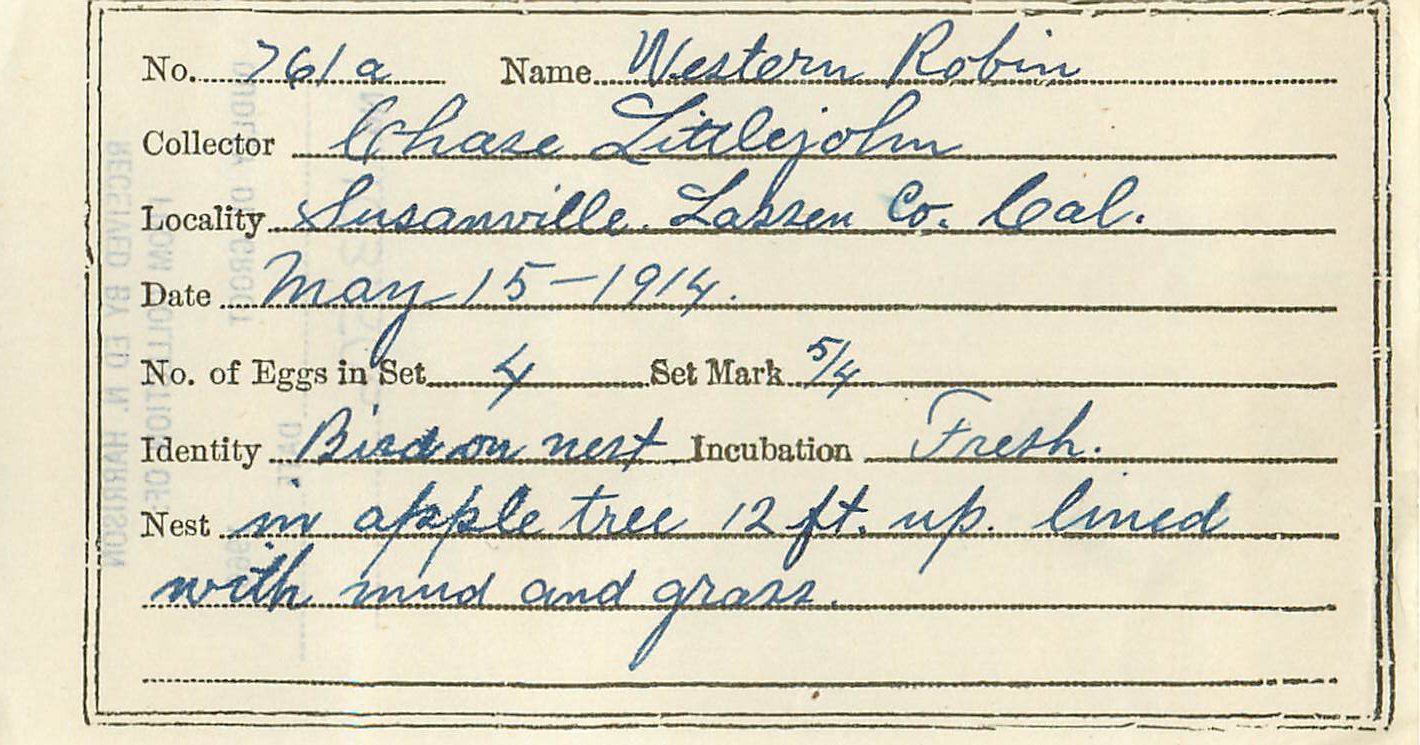 No. 761a Name Western Robin
Collector Chase Littlejohn
Locality Susanville. Lassen Co. Cal.
Date May 15-1914.
No. of Eggs in Set 4 Set Mark 5/4
Identity Bird on nest Incubation Fresh.
Nest in apple tree 12 ft. up. lined
with mud and grass.
RECEIVED BY ED N. HARRISON
FROM COLLECTION OF
DATE